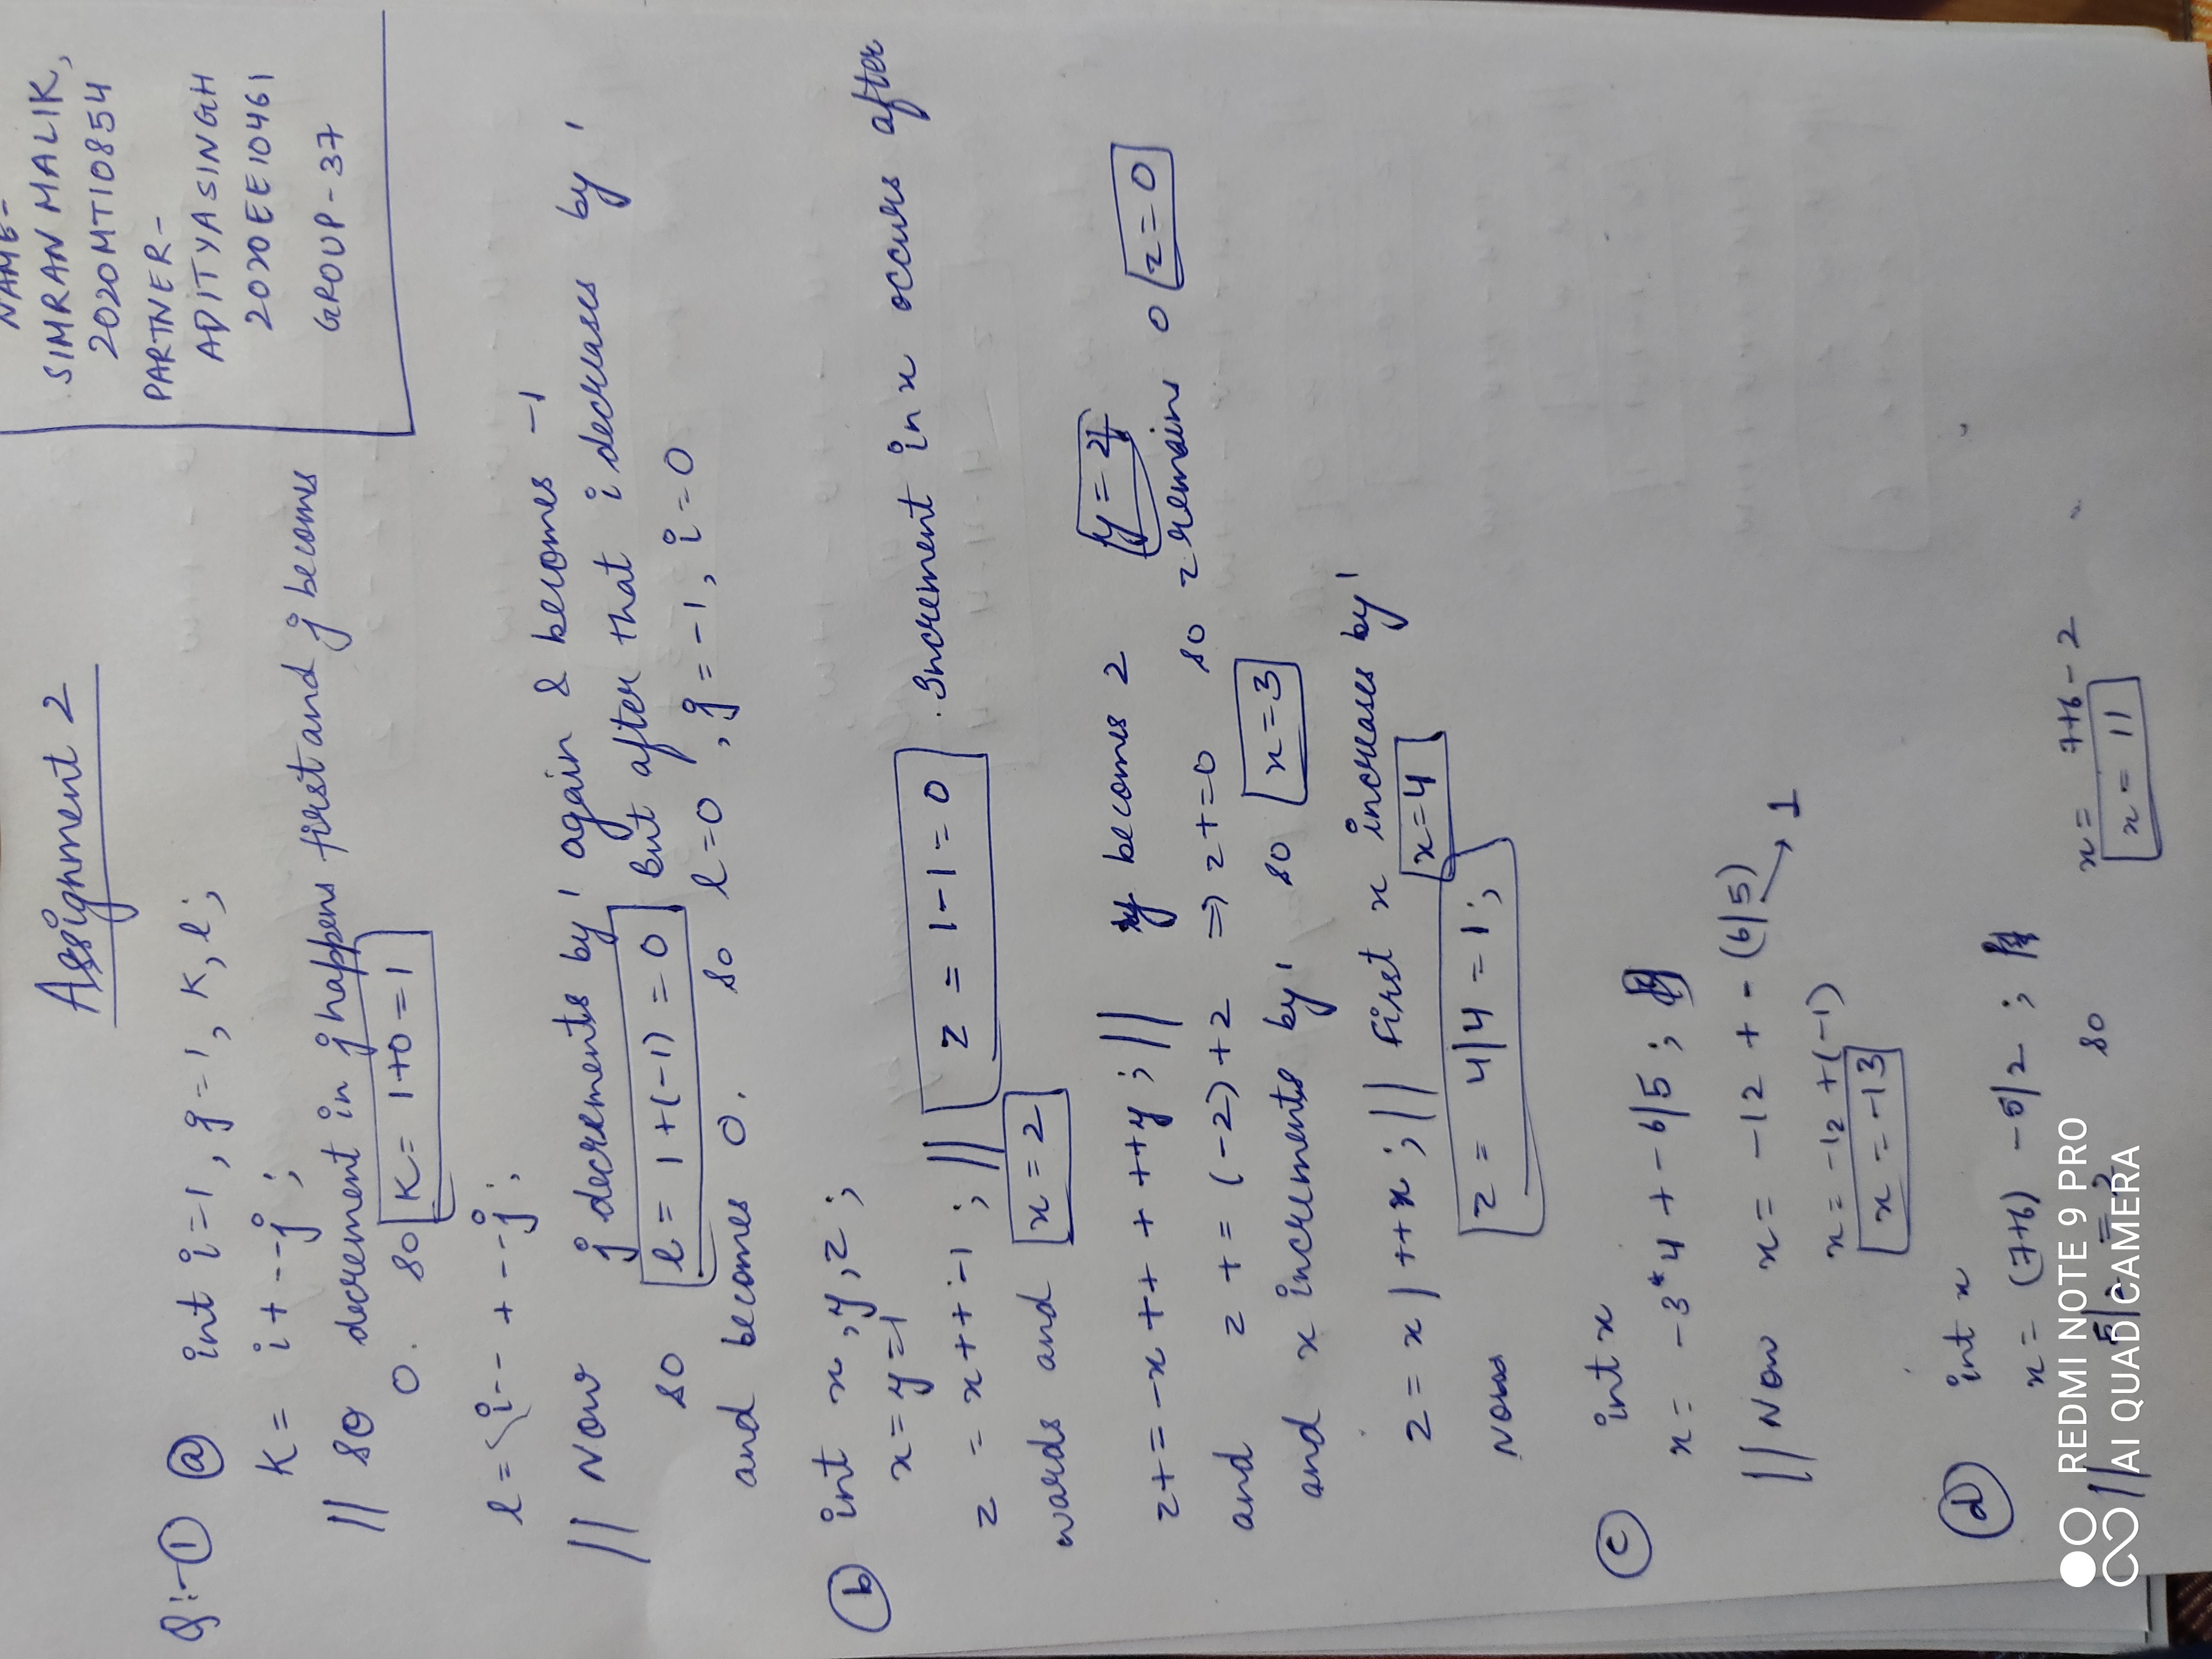 Assignment 2
NAME-
SIMRAN MALIK,
2020MT10854
PARTNER-
ADITYA SINGH
2020EE10461
GROUP-37
Q:-① ⓐ int i=1, j=1, K, l;
K= i+--j;
// so decrement in j happens first and j becomes
0. so K= 1+0=1
l= i-- + --j;
// Now j decrements by 1 again & becomes -1
so l= 1+(-1) = 0 but after that i decreases by 1
and becomes 0. so l=0, j=-1, i=0
ⓑ int x,y,z;
x=y=1
z = x++-1; // z = 1-1=0. Increment in x occurs after
wards and x=2
z+=-x++ + ++y; // y becomes 2 y=2
and z+=(-2)+2 ⇒ z+=0 so z remains 0 z=0
and x increments by 1 so x=3
z=x/++x; // First x increases by 1
x=4
Now z= 4/4=1;
ⓒ int x
x= -3*4+-6/5;
// Now x= -12 + -(6/5) → 1
x= -12 +(-1)
x = -13
ⓓ int x
x= (7+6) -5/2;
// 5/2 = 2 so x= 7+6-2
x= 11
REDMI NOTE 9 PRO
AI QUAD CAMERA